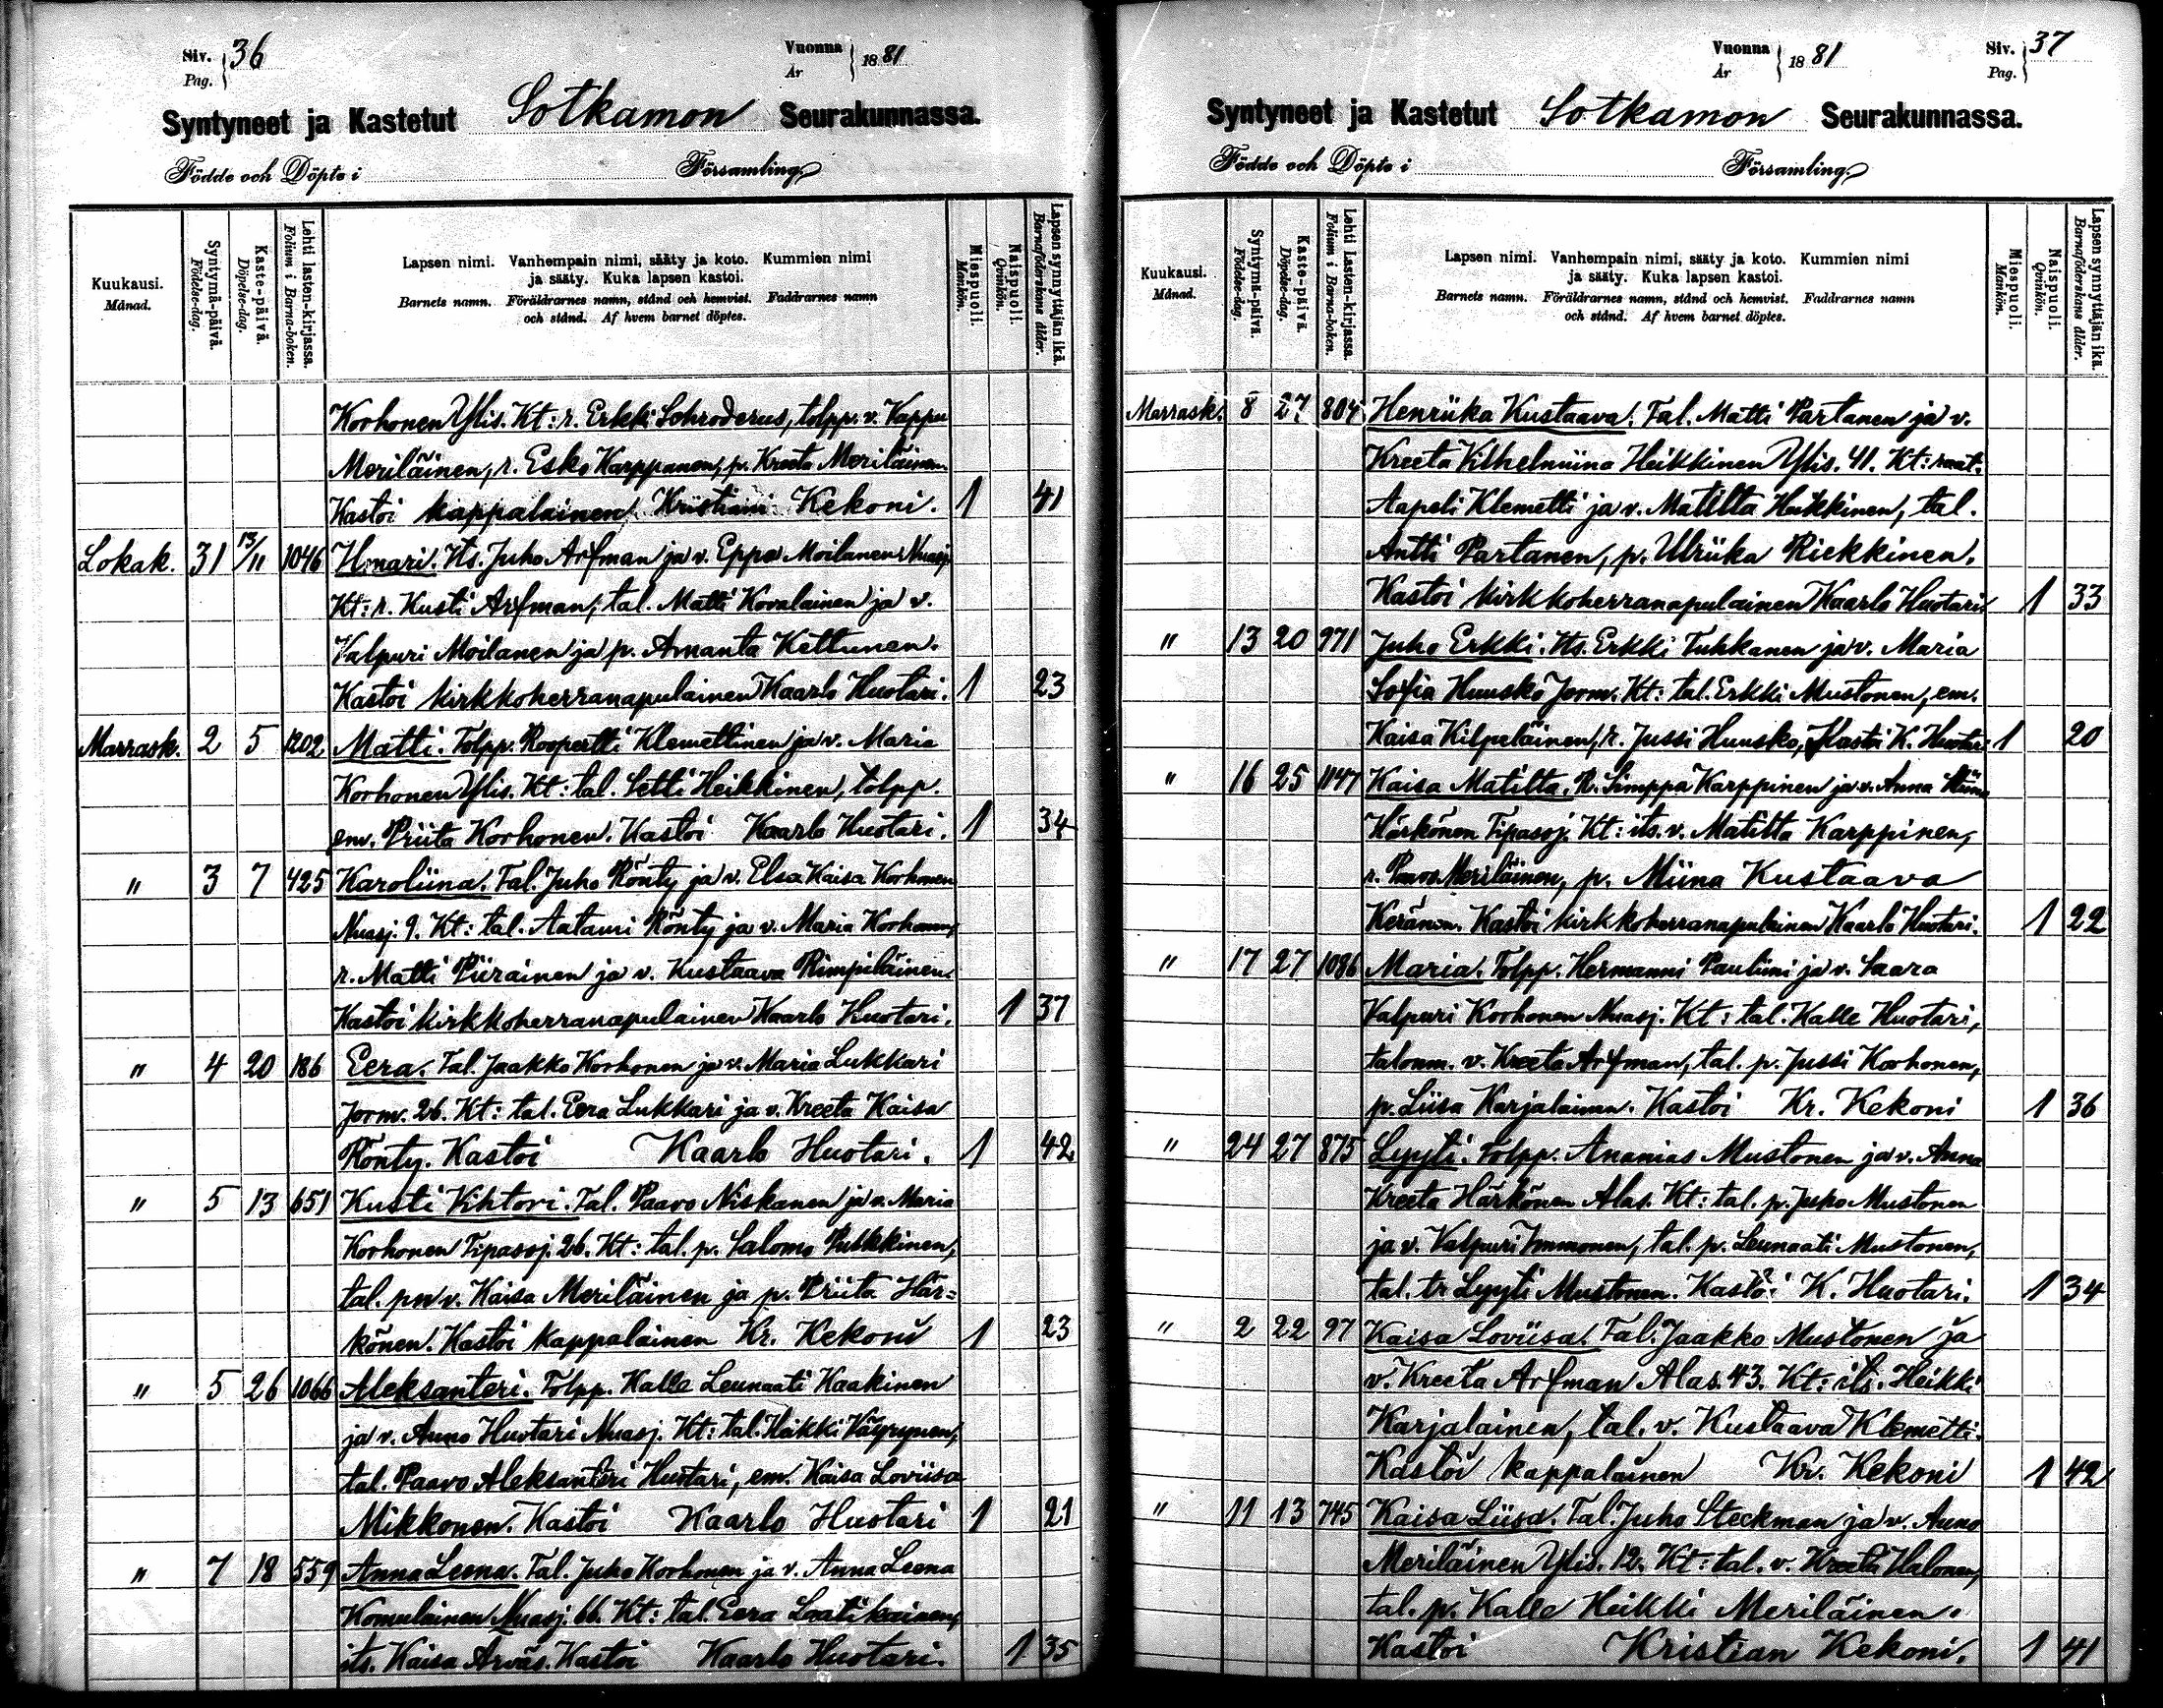 Siv. 36
Pag.
Vuonna 1881
År
Syntyneet ja Kastetut Sotkamon Seurakunnassa.
Födde och Döpte i Församling.
Kuukausi. Månad.
Syntymä-päivä. Födelse-dag.
Kaste-päivä. Döpelse-dag.
Lehti lasten-kirjassa. Folium i Barna-boken.
Lapsen nimi. Vanhempain nimi, sääty ja koto. Kummien nimi
ja sääty. Kuka lapsen kastoi.
Barnets namn. Föräldrarnes namn, stånd och hemvist. Faddrarnes namn
och stånd. Af hvem barnet döptes.
Miespuoli. Mankön.
Naispuoli. Qvinkön.
Lapsen synnyttäjän ikä. Barnaföderskans ålder.
Korhonen Ylis. Kt: r. Erkki Schroderus, tolpp. v. Kappu
Meriläinen, r. Esko Karppanen, p. Kreeta Meriläinen.
Kastoi kappalainen Kristiani Kekoni. 1 41
Lokak. 31 13/11 1046 Ilmari. Its. Juho Arfman ja v. Eppa Moilanen Nuasj.
Kt: r. Kusti Arfman, tal. Matti Kovalainen ja v.
Valpuri Moilanen ja p. Amanta Kettunen.
Kastoi kirkkoherranapulainen Kaarlo Huotari. 1 23
Marrask. 2 5 1202 Matti. Tolpp. Roopertti Klemettinen ja v. Maria
Korhonen Ylis. Kt: tal. Setti Heikkinen, tolpp.
em. Priita Korhonen. Kastoi Kaarlo Huotari. 1 34
" 3 7 425 Karoliina. Tal. Juho Rönty ja v. Elsa Kaisa Korhonen
Nuasj. 9. Kt: tal. Aatami Rönty ja v. Maria Korhonen,
r. Matti Piirainen ja v. Kustaava Rimpiläinen.
Kastoi kirkkoherranapulainen Kaarlo Huotari. 1 37
" 4 20 186 Eera. Tal. Jaakko Korhonen ja v. Maria Lukkari
Jorm. 26. Kt: tal. Eera Lukkari ja v. Kreeta Kaisa
Rönty. Kastoi Kaarlo Huotari. 1 42
" 5 13 651 Kusti Vihtori. Tal. Paavo Niskanen ja v. Maria
Korhonen Tipasoj. 26. Kt: tal. p. Salomo Pulkkinen,
tal. pn v. Kaisa Meriläinen ja p. Priita Här=
könen. Kastoi kappalainen Kr. Kekoni 1 23
" 5 26 1066 Aleksanteri. Tolpp. Kalle Leunaati Kaakinen
ja v. Anna Huotari Nuasj. Kt: tal. Heikki Väyrynen,
tal. Paavo Aleksanteri Huotari, em. Kaisa Loviisa
Mikkonen. Kastoi Kaarlo Huotari 1 21
" 7 18 559 Anna Leena. Tal. Juho Korhonen ja v. Anna Leena
Komulainen Nuasj. 66. Kt: tal. Eera Laatikainen,
its. Kaisa Arväs. Kastoi Kaarlo Huotari. 1 35
Vuonna 1881
År
Siv. 37
Pag.
Syntyneet ja Kastetut Sotkamon Seurakunnassa.
Födde och Döpte i Församling.
Kuukausi. Månad.
Syntymä-päivä. Födelse-dag.
Kaste-päivä. Döpelse-dag.
Lehti Lasten-kirjassa. Folium i Barna-boken.
Lapsen nimi. Vanhempain nimi, sääty ja koto. Kummien nimi
ja sääty. Kuka lapsen kastoi.
Barnets namn. Föräldrarnes namn, stånd och hemvist. Faddrarnes namn
och stånd. Af hvem barnet döptes.
Miespuoli. Mankön.
Naispuoli. Qvinkön.
Lapsen synnyttäjän ikä. Barnaföderskans ålder.
Marrask. 8 27 804 Henriika Kustaava. Tal. Matti Partanen ja v.
Kreeta Vilhelmiina Heikkinen Ylis. 41. Kt: raat.
Aapeli Klemetti ja v. Matilta Heikkinen, tal.
Antti Partanen, p. Ulriika Riekkinen.
Kastoi kirkkoherranapulainen Kaarlo Huotari 1 33
" 13 20 971 Juho Erkki. Its. Erkki Tuhkanen ja v. Maria
Sofia Huusko Jorm. Kt: tal. Erkki Mustonen, em.
Kaisa Kilpeläinen, r. Jussi Huusko, Kastoi K. Huotari 1 20
" 16 25 1147 Kaisa Matilta. R. Simppa Karppinen ja v. Anna Stiina
Härkönen Tipasoj. Kt: its. v. Matilta Karppinen,
r. Paavo Meriläinen, p. Miina Kustaava
Keränen. Kastoi kirkkoherranapulainen Kaarlo Huotari. 1 22
" 17 27 1086 Maria. Tolpp. Hermanni Pauliini ja v. Saara
Valpuri Korhonen Nuasj. Kt: tal. Kalle Huotari,
talonm. v. Kreeta Arfman, tal. p. Jussi Korhonen,
p. Liisa Karjalainen. Kastoi Kr. Kekoni 1 36
" 24 27 875 Lyyti. Tolpp. Ananias Mustonen ja v. Anna
Kreeta Härkönen Alas. Kt: tal. p. Juho Mustonen
ja v. Valpuri Immonen, tal. p. Leunaati Mustonen,
tal. tr Lyyti Mustonen. Kastoi K. Huotari. 1 34
" 2 22 97 Kaisa Loviisa. Tal. Jaakko Mustonen ja
v. Kreeta Arfman Alas. 43. Kt: its. Heikki
Karjalainen, tal. v. Kustaava Klemetti.
Kastoi kappalainen Kr. Kekoni 1 42
" 11 13 745 Kaisa Liisa. Tal. Juho Steckman ja v. Anna
Meriläinen Ylis. 12. Kt: tal. v. Kreeta Halonen,
tal. p. Kalle Heikki Meriläinen.
Kastoi Kristian Kekoni. 1 41